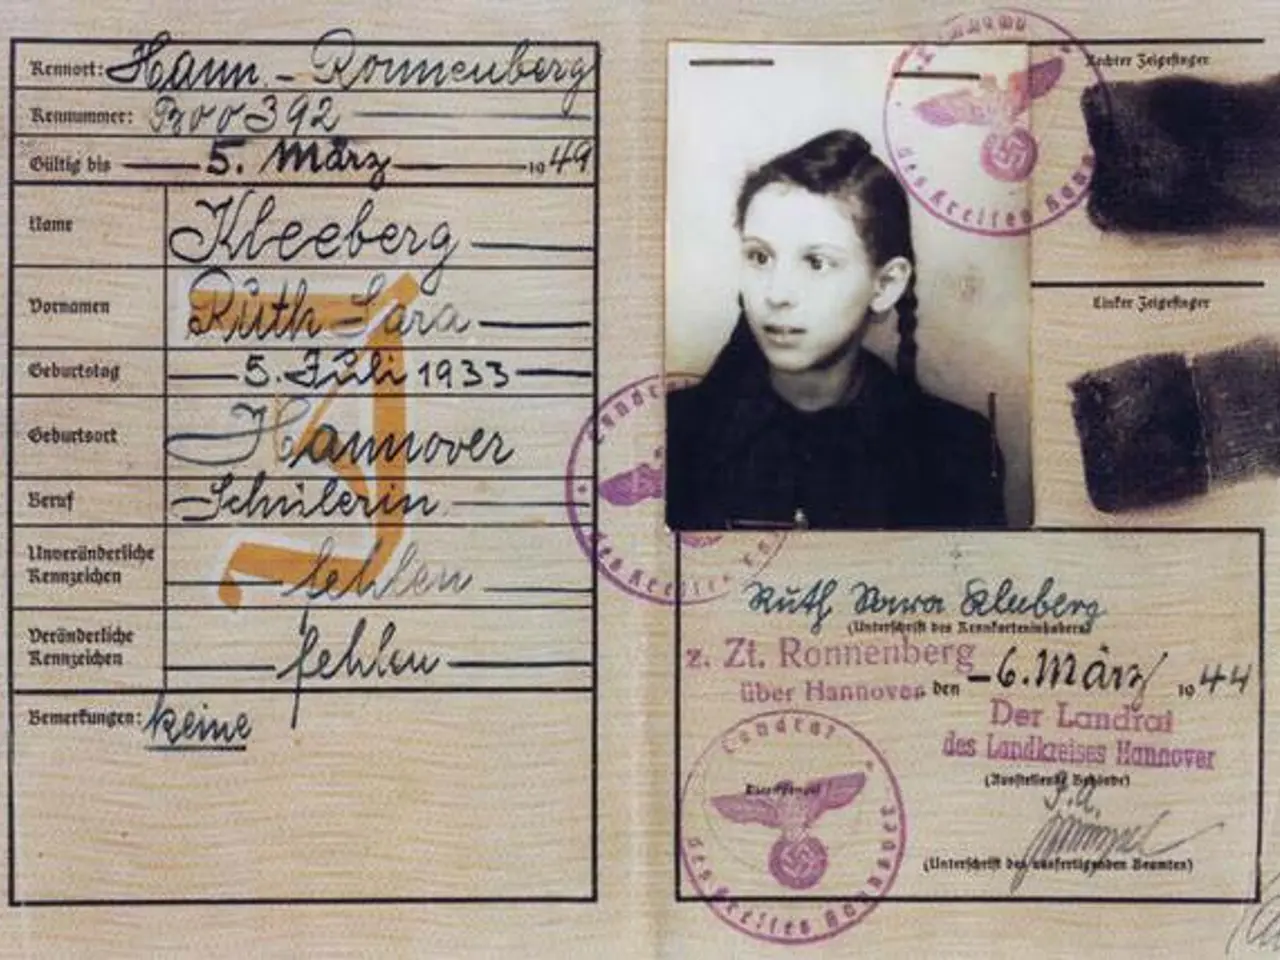 Kennort: Hann. - Ronnenberg
Kennummer: B 00392
Gültig bis 5. März 1949
Name Kleeberg
Vornamen Ruth Sara
Geburtstag 5. Juli 1933
Geburtsort Hannover
Beruf Schülerin
Unveränderliche Kennzeichen fehlen
Veränderliche Kennzeichen fehlen
Bemerkungen: keine
J
Rechter Zeigefinger
Linker Zeigefinger
des Kreises Hann
Landrat
des Kreises
Ruth Sara Kleeberg
(Unterschrift des Kennkarteninhabers)
z. Zt. Ronnenberg
über Hannover den - 6. März 1944
Der Landrat
des Landkreises Hannover
(Ausstellende Behörde)
(Unterschrift des ausfertigenden Beamten)
Landrat
des Kreises Hannover